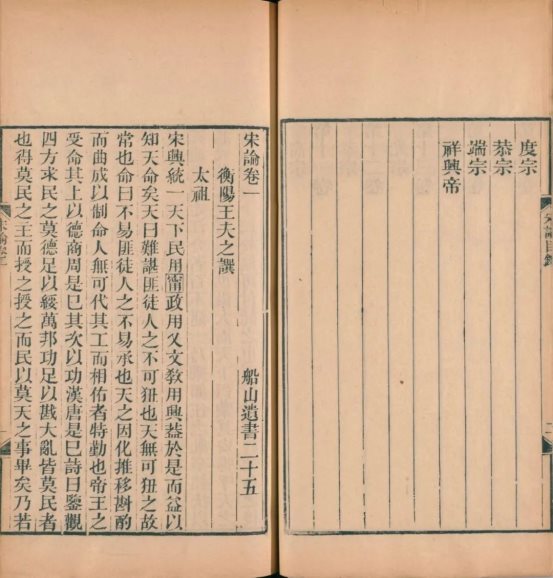 度宗
恭宗
端宗
祥興帝
宋論目錄
二
宋論卷一
船山遺書二十五
衡陽王夫之譔
太祖
宋興統一天下民用甯政用乂文敎用興葢於是而益以
知天命矣天曰難諶匪徒人之不可狃也天無可狃之故
常也命曰不易匪徒人之不易承也天之因化推移斟酌
而曲成以制命人無可代其工而相佑者特勤也帝王之
受命其上以德商周是已其次以功漢唐是已詩曰鑒觀
四方求民之莫德足以綏萬邦功足以戡大亂皆莫民者
也得莫民之主而授之授之而民以莫天之事畢矣乃若
宋論卷一
一